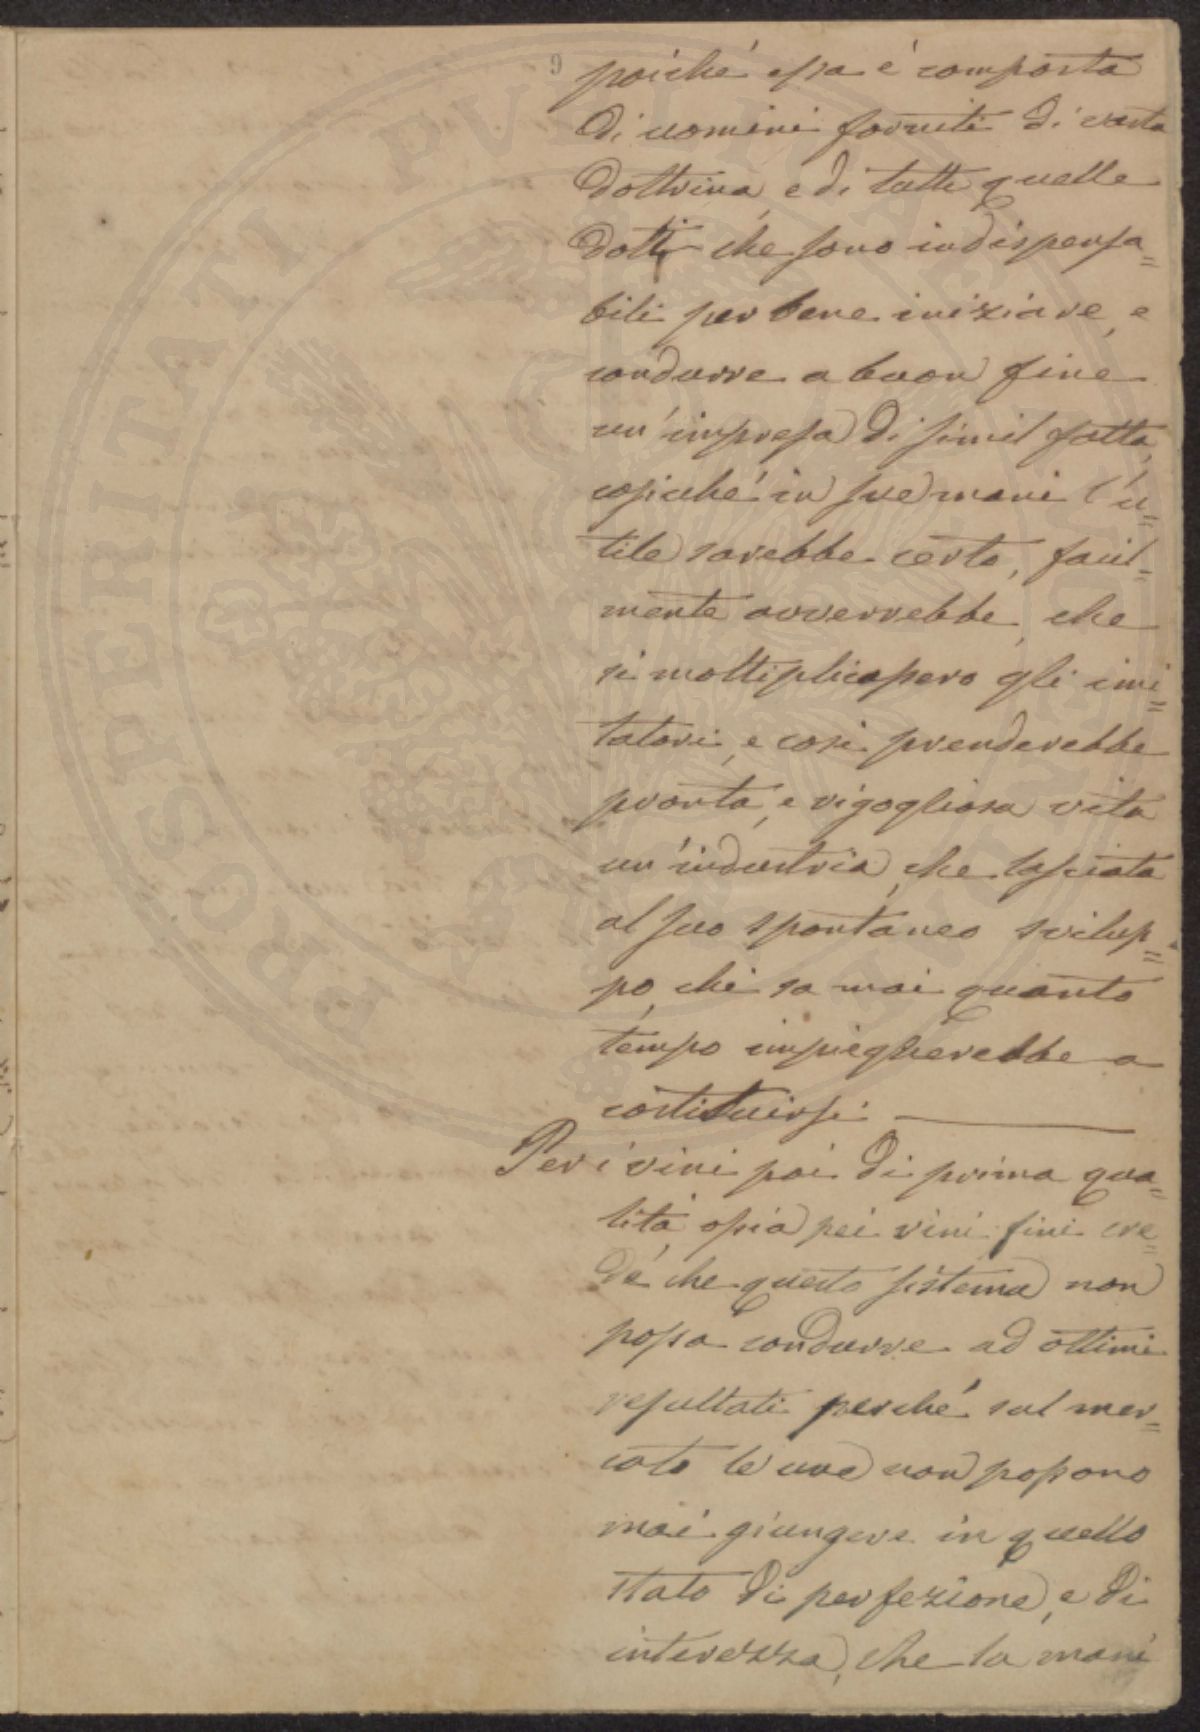 9
poiché essa é composta
di uomini forniti di vasta
dottrina, e di tutte quelle
doti che sono indispensa=
bili per bene iniziare, e
condurre a buon fine
un'impresa di simil fatta,
cosicché in sue mani l'u=
tile sarebbe certo, facil=
mente avverrebbe, che
si moltiplicassero gli imi=
tatori, e cosi prenderebbe
pronta, e rigogliosa vita
un'industria, che lasciata
al suo spontaneo svilup=
po, chi sa mai quanto
tempo impiegherebbe a
costituirsi.
Per i vini poi di prima qua=
lità ossia pei vini fini cre=
dé che questo sistema non
possa condurre ad ottimi
resultati perché sul mer=
cato le uve non possono
mai giungere in quello
stato di perfezione, e di
interezza, che la mani
PROSPERITATI PVBLICAE AVGENDAE